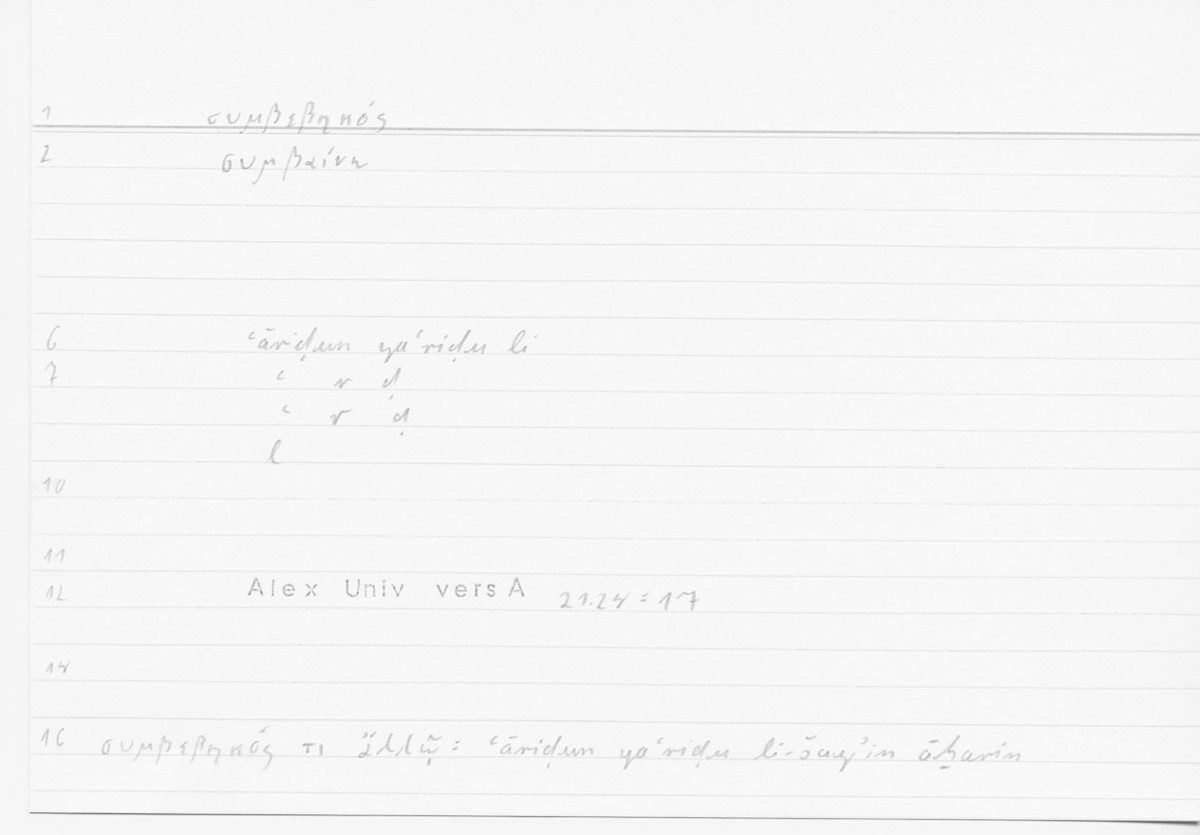 1 συμβεβηκός
2 συμβαίνω
6 ʿāriḍun yaʿriḍu li
7 ʿ r ḍ
ʿ r ḍ
l
10
11
12 Alex Univ vers A 21.24 = 17
14
16 συμβεβηκός τι ἄλλῳ = ʿāriḍun yaʿriḍu li-šayʾin āḫarin